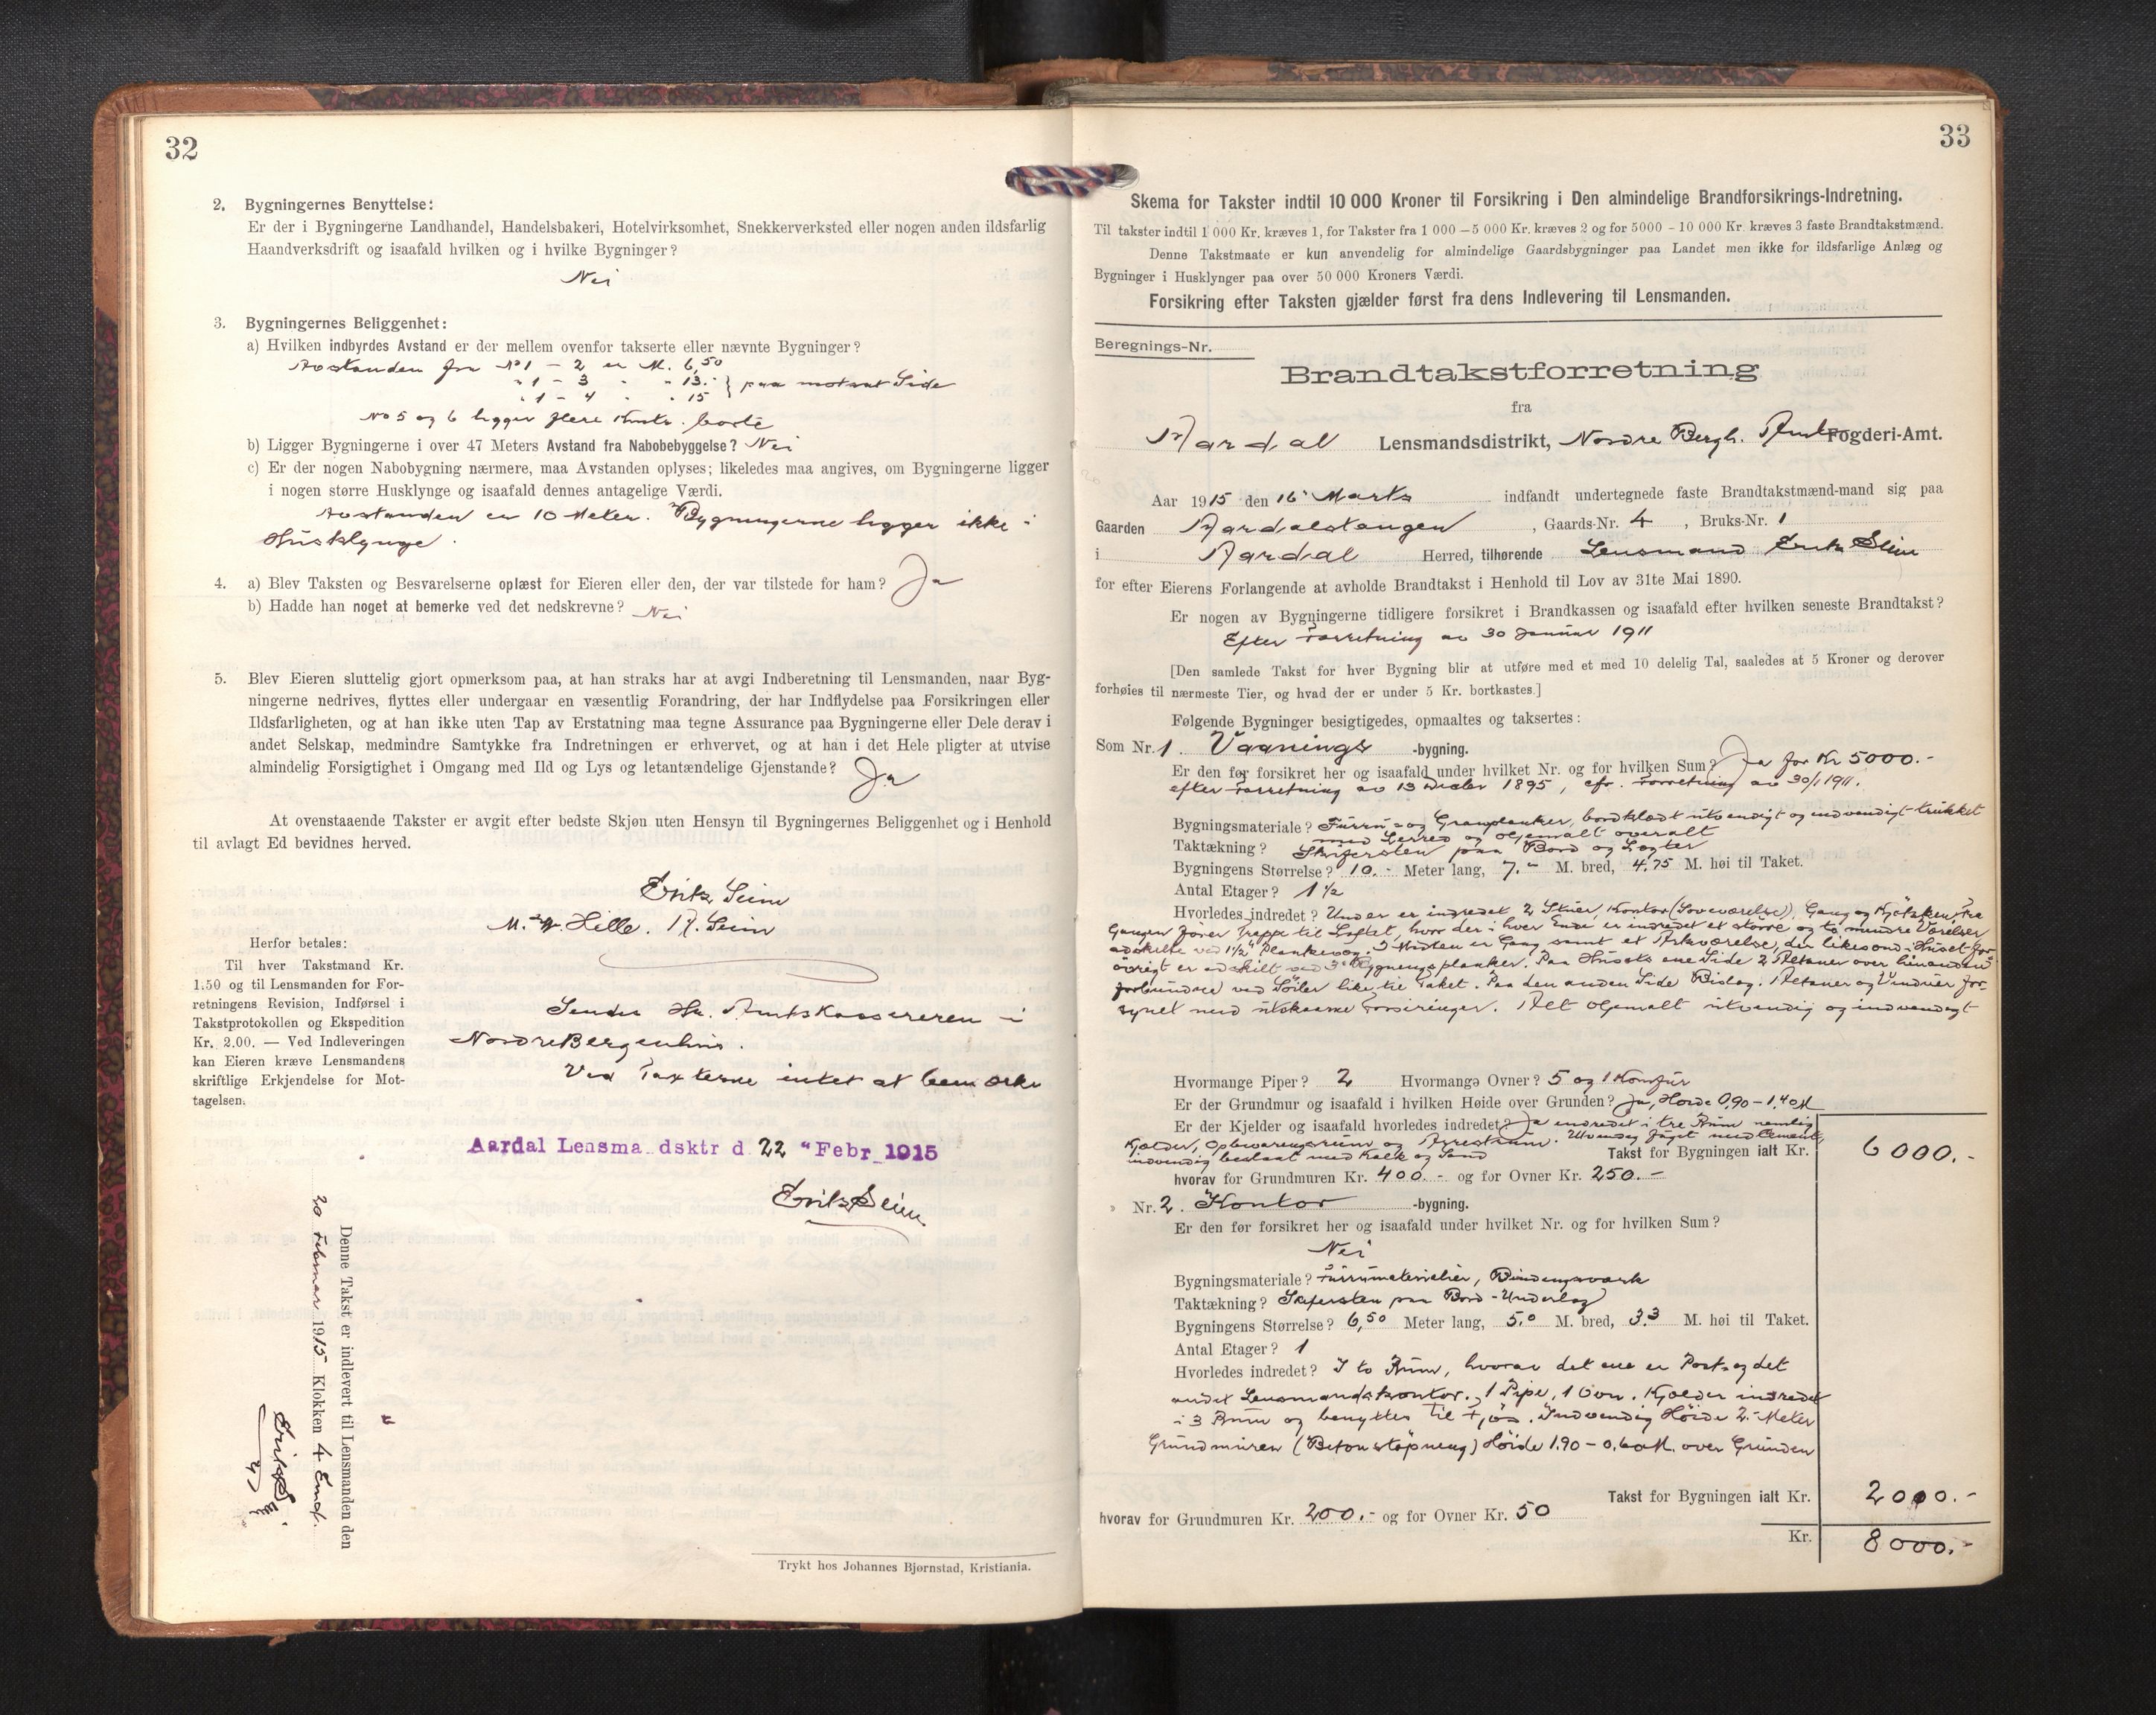 32
2. Bygningernes Benyttelse:
Er der i Bygningerne Landhandel, Handelsbakeri, Hotelvirksomhet, Snekkerverksted eller nogen anden ildsfarlig
Haandverksdrift og isaafald hvilken og i hvilke Bygninger?
Nei
3. Bygningernes Beliggenhet:
a) Hvilken indbyrdes Avstand er der mellem ovenfor takserte eller nævnte Bygninger?
Avstanden fra No 1 - 2 er M. 6,50
" 1 - 3 " " 13.- } paa motsat Side
" 1 - 4 " " 15
No 5 og 6 ligger flere Hundr. borte
b) Ligger Bygningerne i over 47 Meters Avstand fra Nabobebyggelse? Nei
c) Er der nogen Nabobygning nærmere, maa Avstanden oplyses; likeledes maa angives, om Bygningerne ligger
i nogen større Husklynge og isaafald dennes antagelige Værdi.
Avstanden er 10 Meter. Bygningerne ligger ikke i
Husklynge.
4. a) Blev Taksten og Besvarelserne oplæst for Eieren eller den, der var tilstede for ham? Ja
b) Hadde han noget at bemerke ved det nedskrevne? Nei
5. Blev Eieren sluttelig gjort opmerksom paa, at han straks har at avgi Indberetning til Lensmanden, naar Byg-
ningerne nedrives, flyttes eller undergaar en væsentlig Forandring, der har Indflydelse paa Forsikringen eller
Ildsfarligheten, og at han ikke uten Tap av Erstatning maa tegne Assurance paa Bygningerne eller Dele derav i
andet Selskap, medmindre Samtykke fra Indretningen er erhvervet, og at han i det Hele pligter at utvise
almindelig Forsigtighet i Omgang med Ild og Lys og letantændelige Gjenstande? Ja
At ovenstaaende Takster er avgit efter bedste Skjøn uten Hensyn til Bygningernes Beliggenhet og i Henhold
til avlagt Ed bevidnes herved.
Erik Seim
M. W. Hille. A. Seim
Herfor betales:
Til hver Takstmand Kr.
1.50 og til Lensmanden for For-
retningens Revision, Indførsel i
Takstprotokollen og Ekspedition
Kr. 2.00. — Ved Indleveringen
kan Eieren kræve Lensmandens
skriftlige Erkjendelse for Mot-
tagelsen.
Sendes Hr. Amtskassereren i
Nordre Bergenhus.
Ved Taxterne intet at bemærke
Aardal Lensma dsktr d 22 " Febr 1915
Erik Seim
Denne Takst er indlevert til Lensmanden den
20 Februar 1915 Klokken 4 Emd.
Erik Seim
Trykt hos Johannes Bjørnstad, Kristiania.
33
Skema for Takster indtil 10 000 Kroner til Forsikring i Den almindelige Brandforsikrings-Indretning.
Til takster indtil 1 000 Kr. kræves 1, for Takster fra 1 000 — 5 000 Kr. kræves 2 og for 5000 - 10 000 Kr. kræves 3 faste Brandtakstmænd.
Denne Takstmaate er kun anvendelig for almindelige Gaardsbygninger paa Landet men ikke for ildsfarlige Anlæg og
Bygninger i Husklynger paa over 50 000 Kroners Værdi.
Forsikring efter Taksten gjælder først fra dens Indlevering til Lensmanden.
Beregnings-Nr.
Brandtakstforretning
fra
Aardal Lensmandsdistrikt, Nordre Bergh. Amt Fogderi-Amt.
Aar 1915 den 16 Marts indfandt undertegnede faste Brandtakstmænd-mand sig paa
Gaarden Aardalstangen, Gaards-Nr. 4, Bruks-Nr. 1
i Aardal Herred, tilhørende Lensmand Erik Seim
for efter Eierens Forlangende at avholde Brandtakst i Henhold til Lov av 31te Mai 1890.
Er nogen av Bygningerne tidligere forsikret i Brandkassen og isaafald efter hvilken seneste Brandtakst?
Efter Forretning av 30 Januar 1911
[Den samlede Takst for hver Bygning blir at utføre med et med 10 delelig Tal, saaledes at 5 Kroner og derover
forhøies til nærmeste Tier, og hvad der er under 5 Kr. bortkastes.]
Følgende Bygninger besigtigedes, opmaaltes og taksertes:
Som Nr. 1. Vaanings -bygning.
Er den før forsikret her og isaafald under hvilket Nr. og for hvilken Sum? Ja for Kr 5000.-
efter Forretning av 13 Decbr 1895, cfr. Forretning av 30/1 1911.
Bygningsmateriale? Furru- og Granplanker, bordklædt utvendigt og indvendigt trukket
med Lerred og oljemalt overalt
Taktækning? Skifersten paa Bord og Lægter
Bygningens Størrelse? 10.- Meter lang, 7.- M. bred, 4,75 M. høi til Taket.
Antal Etager? 1 1/2
Hvorledes indredet? Under er indredet 2 Stuer, Kontor (Soveværelse), Gang og Kjøkken. Fra
Gangen fører Trappe til Loftet, hvor der i hver Ende er indredet et større og to mindre Værelser
adskilte ved 1 1/2" Plankevæg. I Midten er Gang samt et Arkværelse, der likesom i Huset for-
øvrigt er adskilt ved 3" Bygningsplanker. Paa Husets ene Side 2 Altaner over hinanden
forbundne ved Søiler like til Taket. Paa den anden Side Bislag. Altaner og Vinduer for-
synet med utskaarne Forsiringer. Alt oljemalt utvendig og indvendigt
Hvormange Piper? 2 Hvormange Ovner? 5 og 1 Komfur
Er der Grundmur og isaafald i hvilken Høide over Grunden? Ja, Høide 0,90 - 1,40 M
Er der Kjelder og isaafald hvorledes indredet? Ja indredet i tre Rum nemlig
Kjelder, Opbevaringsrum og Arrestrum. Utvendig fuget med Cement,
indvendig beslaat med Kalk og Sand
Takst for Bygningen ialt Kr. 6000.-
hvorav for Grundmuren Kr. 400.- og for Ovner Kr. 250.-
Nr. 2. Kontor -bygning.
Er den før forsikret her og isaafald under hvilket Nr. og for hvilken Sum?
Nei
Bygningsmateriale? Furrumaterialier, Bindingsværk
Taktækning? Skifersten paa Bord-Underlag
Bygningens Størrelse? 6,50 Meter lang, 5.0 M. bred, 3.3 M. høi til Taket.
Antal Etager? 1
Hvorledes indredet? I to Rum, hvorav det ene er Post- og det
andet Lensmandskontor. 1 Pipe, 1 Ovn. Kjelder indredet
i 3 Rum og benyttes til Fjøs. Indvendig Høide 2.- Meter
Grundmuren (Betonstøpning) Høide 1.90 - 0.60 M. over Grunden
Takst for Bygningen ialt Kr. 2000.-
hvorav for Grundmuren Kr. 200.- og for Ovner Kr. 50
Kr. 8000.-